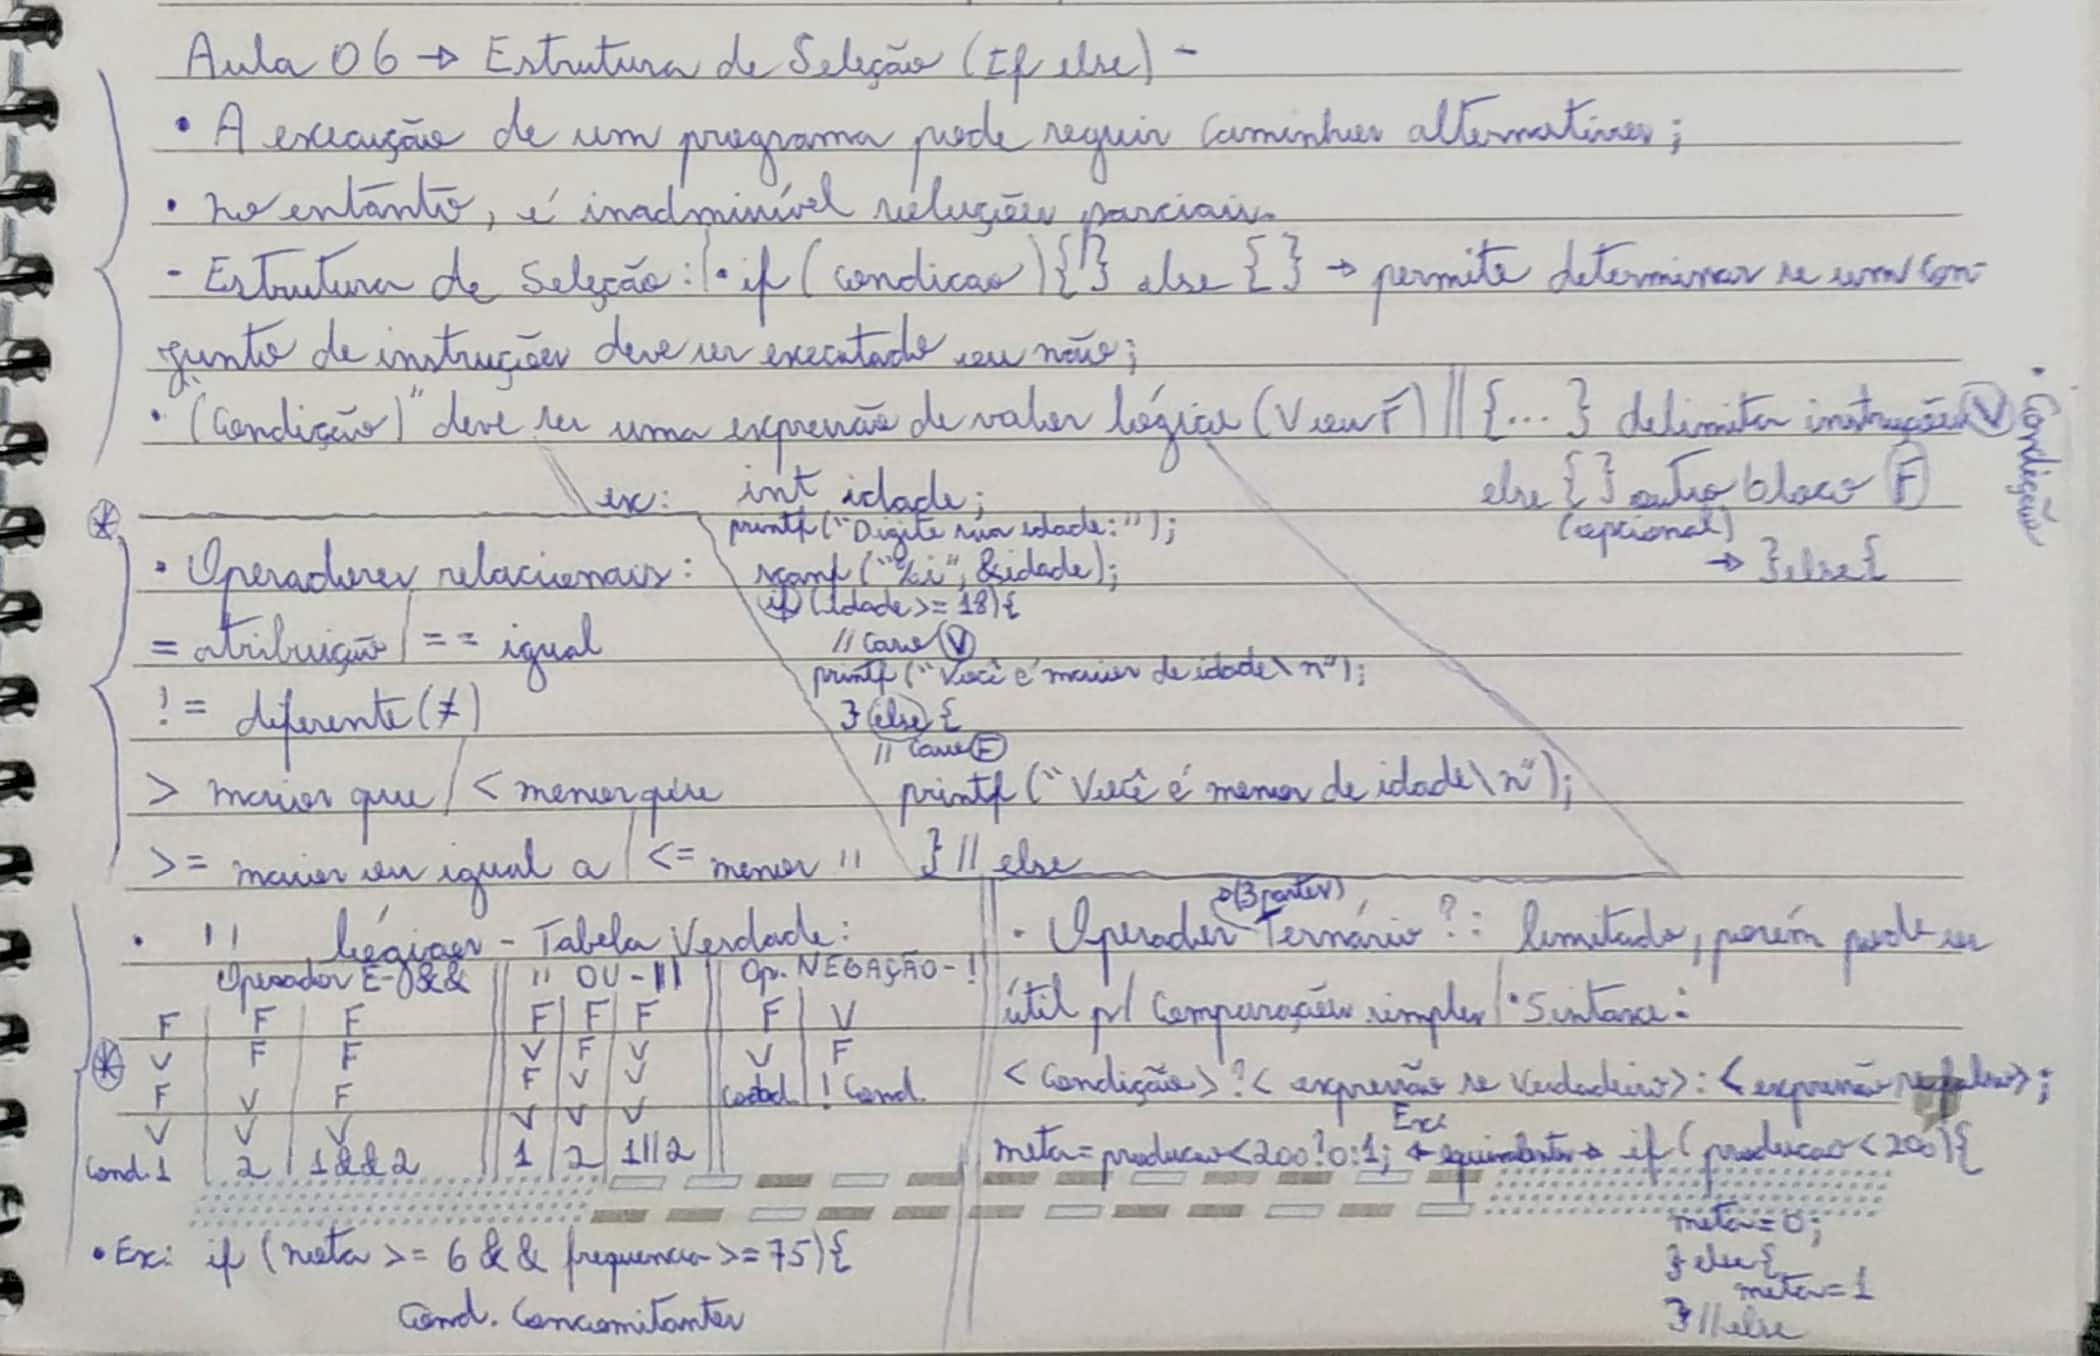 Aula 06 → Estrutura de Seleção (If else) -
• A execução de um programa pode seguir caminhos alternativos;
• no entanto, é inadmissível soluções parciais.
- Estrutura de Seleção: | • if (condicao) { } else { } → permite determinar se um con-
junto de instruções deve ser executado ou não;
• "(Condição)" deve ser uma expressão de valor lógico (V ou F) || {...} delimita instruções V
• Condição
else { } outro bloco F
(opcional)
→ } else {
ex: int idade;
printf("Digite sua idade:");
scanf("%i", &idade);
if (idade >= 18) {
// caso V
printf("Você é maior de idade\n");
} else {
// caso F
printf("Você é menor de idade\n");
} // else
• Operadores relacionais:
= atribuição / == igual
!= diferente (≠)
> maior que / < menor que
>= maior ou igual a / <= menor "
• " lógicos - Tabela Verdade:
Operador E - && || " OU - || || Op. NEGAÇÃO - !
F | F | F || F | F | F || F | V
V | F | F || V | F | V || V | F
F | V | F || F | V | V || cond. | ! Cond.
V | V | V || V | V | V
Cond. 1 | 2 | 1 && 2 || 1 | 2 | 1||2
• Ex: if (nota >= 6 && frequencia >= 75) {
Cond. Concomitantes
→ (3 partes)
• Operador Ternário ? : limitado, porém pode ser
útil p/ comparações simples / • Sintaxe:
< Condição > ? < expressão se verdadeiro > : < expressão se falso > ;
Ex:
meta = producao < 200 ? 0 : 1; ← equivalente → if (producao < 200) {
meta = 0;
} else {
meta = 1
} // else